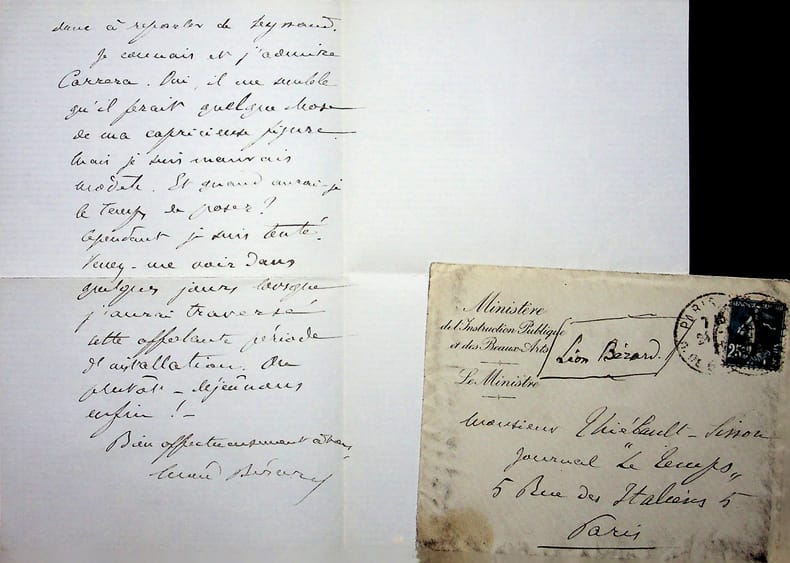 donc à reparler de Seyssaud.
Je connais et j'admire
Carrera. Oui, il me semble
qu'il ferait quelque chose
de ma capricieuse figure.
Mais je suis mauvais
modèle. Et quand aurai-je
le temps de poser?
Cependant je suis tenté.
Venez-me voir dans
quelques jours lorsque
j'aurai traversé
cette affolante période
d'installation. Ou
plutôt - déjeûnons
enfin! -
Bien affectueusement à vous
Bérard
Ministère
de l'Instruction Publique
et des Beaux Arts
Le Ministre
Léon Bérard.
PARIS
25
Monsieur Thiébault-Sisson
Journal "Le Temps"
5 Rue des Italiens 5
Paris